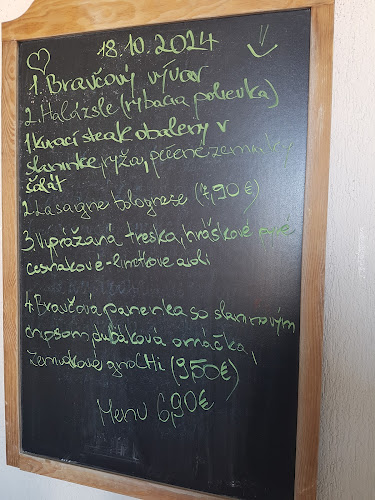 18.10.2024
1. Bravčový vývar
2. Halászle (rybacia polievka)
1. Kurací steak obalený v
slaninke, ryža, pečené zemiaky,
šalát
2. Lasagne bolognese (7,90€)
3. Vyprážaná treska, hráškové pyré
cesnakové-limetkové aioli
4. Bravčová panenka so slaninovým
chipsom, dubáková omáčka,
zemiakové gnocchi (9,50€)
Menu 6,90€